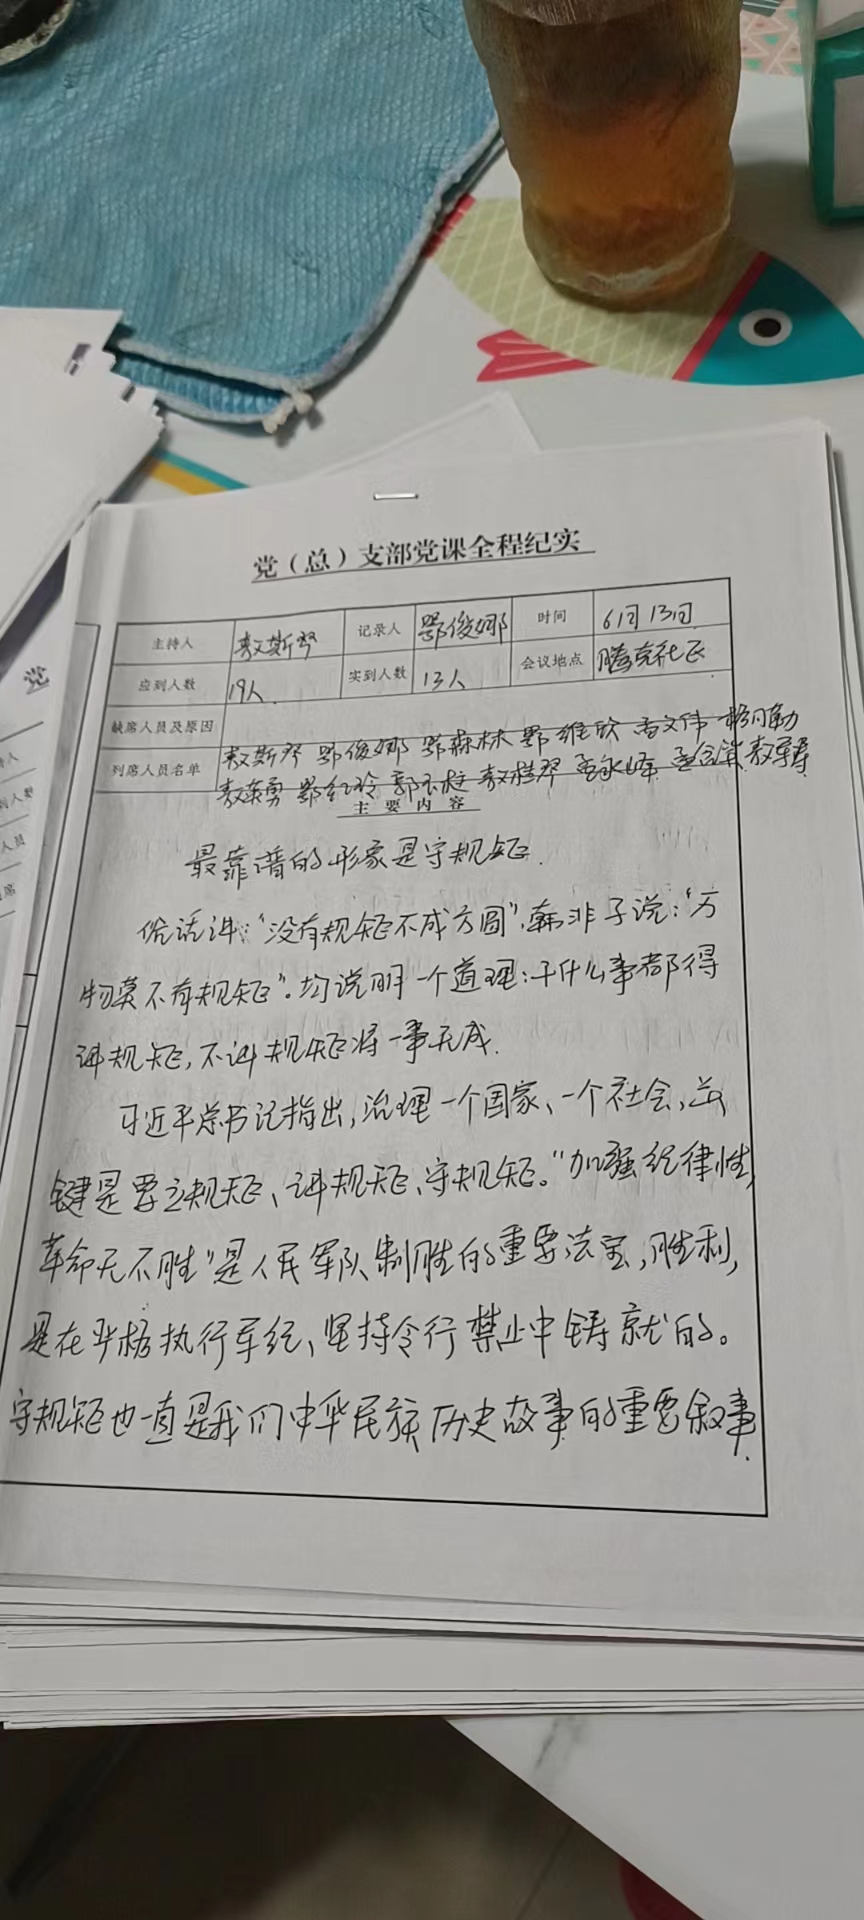 党（总）支部党课全程纪实
主持人 敖斯琴 记录人 鄂俊娜 时间 6月13日
应到人数 19人. 实到人数 13人 会议地点 腾克社区
缺席人员及原因
列席人员名单 敖斯琴 鄂俊娜 鄂森林 鄂维欣
敖英勇 鄂红玲
主要内容
最靠谱的形象是守规矩.
俗话讲:“没有规矩不成方圆”,韩非子说:“万
物莫不有规矩”.均说明一个道理:干什么事都得
讲规矩,不讲规矩将一事无成.
习近平总书记指出,治理一个国家、一个社会,关
键是要立规矩、讲规矩、守规矩。“加强纪律性,
革命无不胜”是人民军队制胜的重要法宝,胜利,
是在严格执行军纪、坚持令行禁止中铸就的。
守规矩也一直是我们中华民族历史故事的重要叙事.
党
人员
席